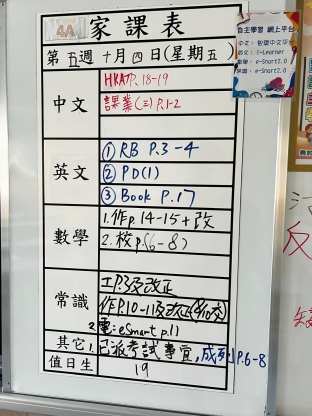 4A 家課表
第五週 十月四日(星期五)
中文
HKAT P.18-19
課業(三) P.1-2
英文
① RB P.3-4
② PD(1)
③ Book P.17
數學
1. 作 p.14-15 + 改
2. 校 p.(6-8)
常識
工P.3及改正
作P.10-11及改正
電: eSmart p.11
其它
1. 已派考試事宜,
P.6-8
值日生
19
自主學習 網上平台
中文: 智愛中文平台
英文: i-Learner
數學: eSmart2.0
常識: eSmart2.0